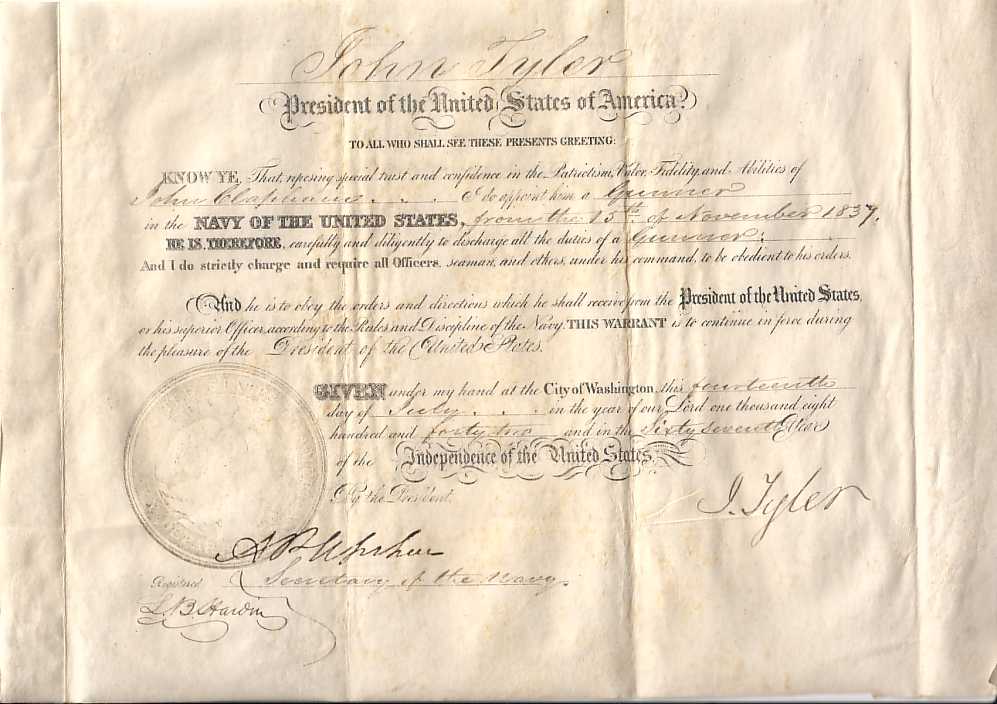 John Tyler
President of the United States of America,
TO ALL WHO SHALL SEE THESE PRESENTS GREETING:
KNOW YE, That, reposing special trust and confidence in the Patriotism, Valor, Fidelity, and Abilities of
John Clapham . . . I do appoint him a Gunner
in the NAVY OF THE UNITED STATES, from the 15th of November 1837.
HE IS, THEREFORE, carefully and diligently to discharge all the duties of a Gunner;
And I do strictly charge and require all Officers, seaman, and others, under his command, to be obedient to his orders.
And he is to obey the orders and directions which he shall receive from the President of the United States,
or his superior Officer, according to the Rules and Discipline of the Navy. THIS WARRANT is to continue in force during
the pleasure of the President of the United States.
GIVEN under my hand at the City of Washington, this fourteenth
day of July . . . in the year of our Lord one thousand eight
hundred and forty two and in the Sixty seventh Year
of the Independence of the United States.
By the President,
J. Tyler
A P Upshur
Secretary of the Navy.
Registered
L. B. Hardin